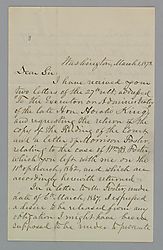 Washington, March 1, 1872.
Dear Sir
I have received your
two letters of the 27th ult. addressed
to the Executor or Administrator
of the late Hon. Horatio King
and requesting the return of the
copy of the Finding of the Court
and a letter of Morrison Foster
relating to the case of Wm. B. Foster,
which you left with me on the
10th of March, 1862, and which are
accordingly herewith returned.
In a letter to Mr. Foster, under
date of 6 March, 1857, I expressed
a desire to be released from any
obligation I might have been
supposed to be under to prevent